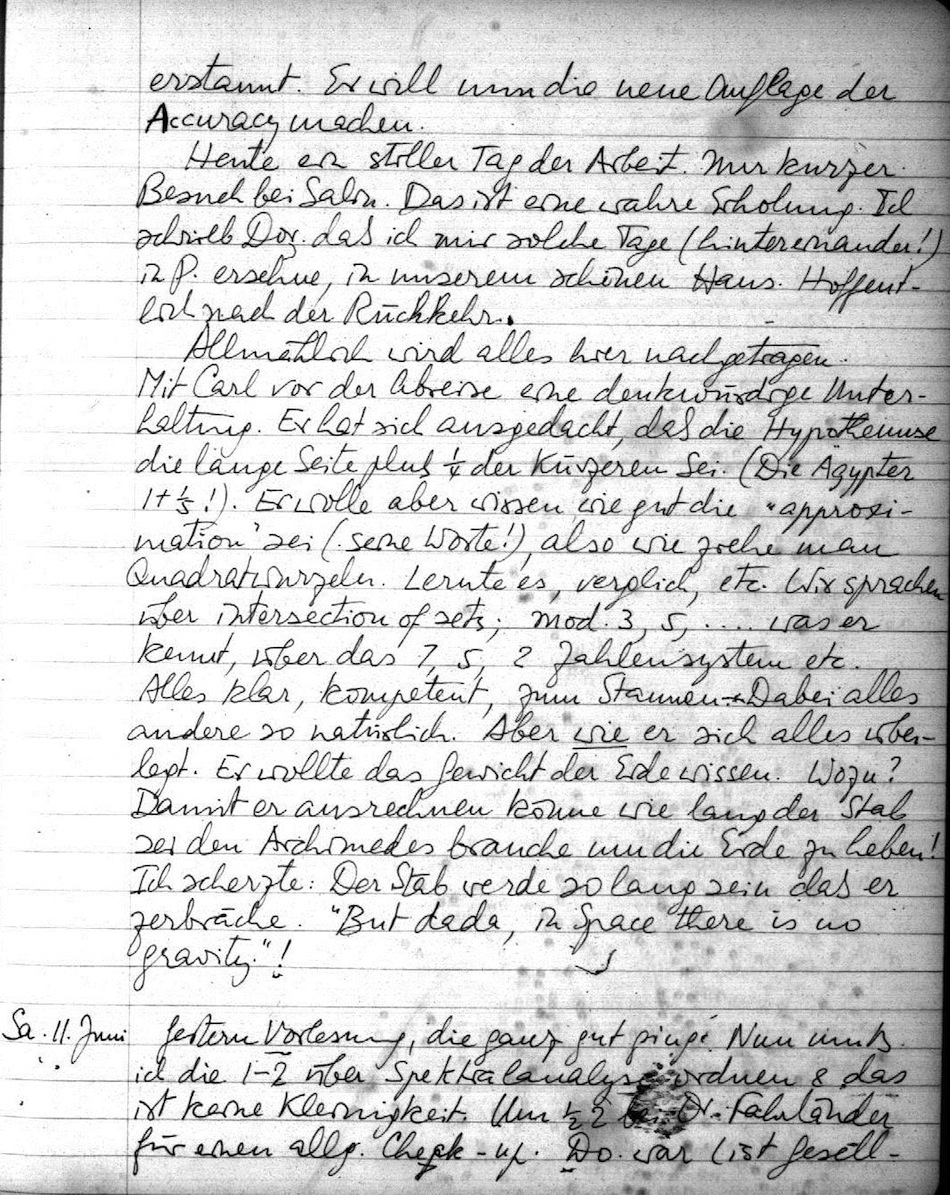 erstaunt. Er will nun die neue Auflage der
Accuracy machen.
Heute ein stiller Tag der Arbeit. Nur kurzer
Besuch bei Salin. Das ist eine wahre Erholung. Ich
schrieb Dor. daß ich mir solche Tage (hintereinander!)
in P. ersehne, in unserem schönen Haus. Hoffent-
lich nach der Rückkehr.
Allmählich wird alles hier nachgetragen.
Mit Carl vor der Abreise eine denkwürdige Unter-
haltung. Er hat sich ausgedacht, daß die Hypothenuse
die länge Seite plus ¼ der Kürzeren sei. (Die Ägypter
1+⅓!). Er wolle aber wissen wie gut die "approxi-
mation" sei (seine Worte!), also wie ziehe man
Quadratwurzeln. Lernte es, verglich, etc. Wir sprachen
über intersection of sets; mod. 3, 5, .... was er
kennt, über das 7, 5, 2 Zahlensystem etc.
Alles klar, kompetent, zum Staunen. Dabei alles
andere so natürlich. Aber wie er sich alles über-
legt. Er wollte das Gewicht der Erde wissen. Wozu?
Damit er ausrechnen könne wie lang der Stab
sei den Archimedes brauche um die Erde zu heben!
Ich scherzte: Der Stab werde so lang sein daß er
zerbräche. "But dada, in Space there is no
gravity."!
Sa. 11. Juni
Gestern Vorlesung, die ganz gut ging. Nun muß
ich die 1-2 über Spektralanalyse ordnen & das
ist keine Kleinigkeit. Um ½2 bei Dr. Fahrländer
für einen allg. Check-up. Do. war (ist Gesell-